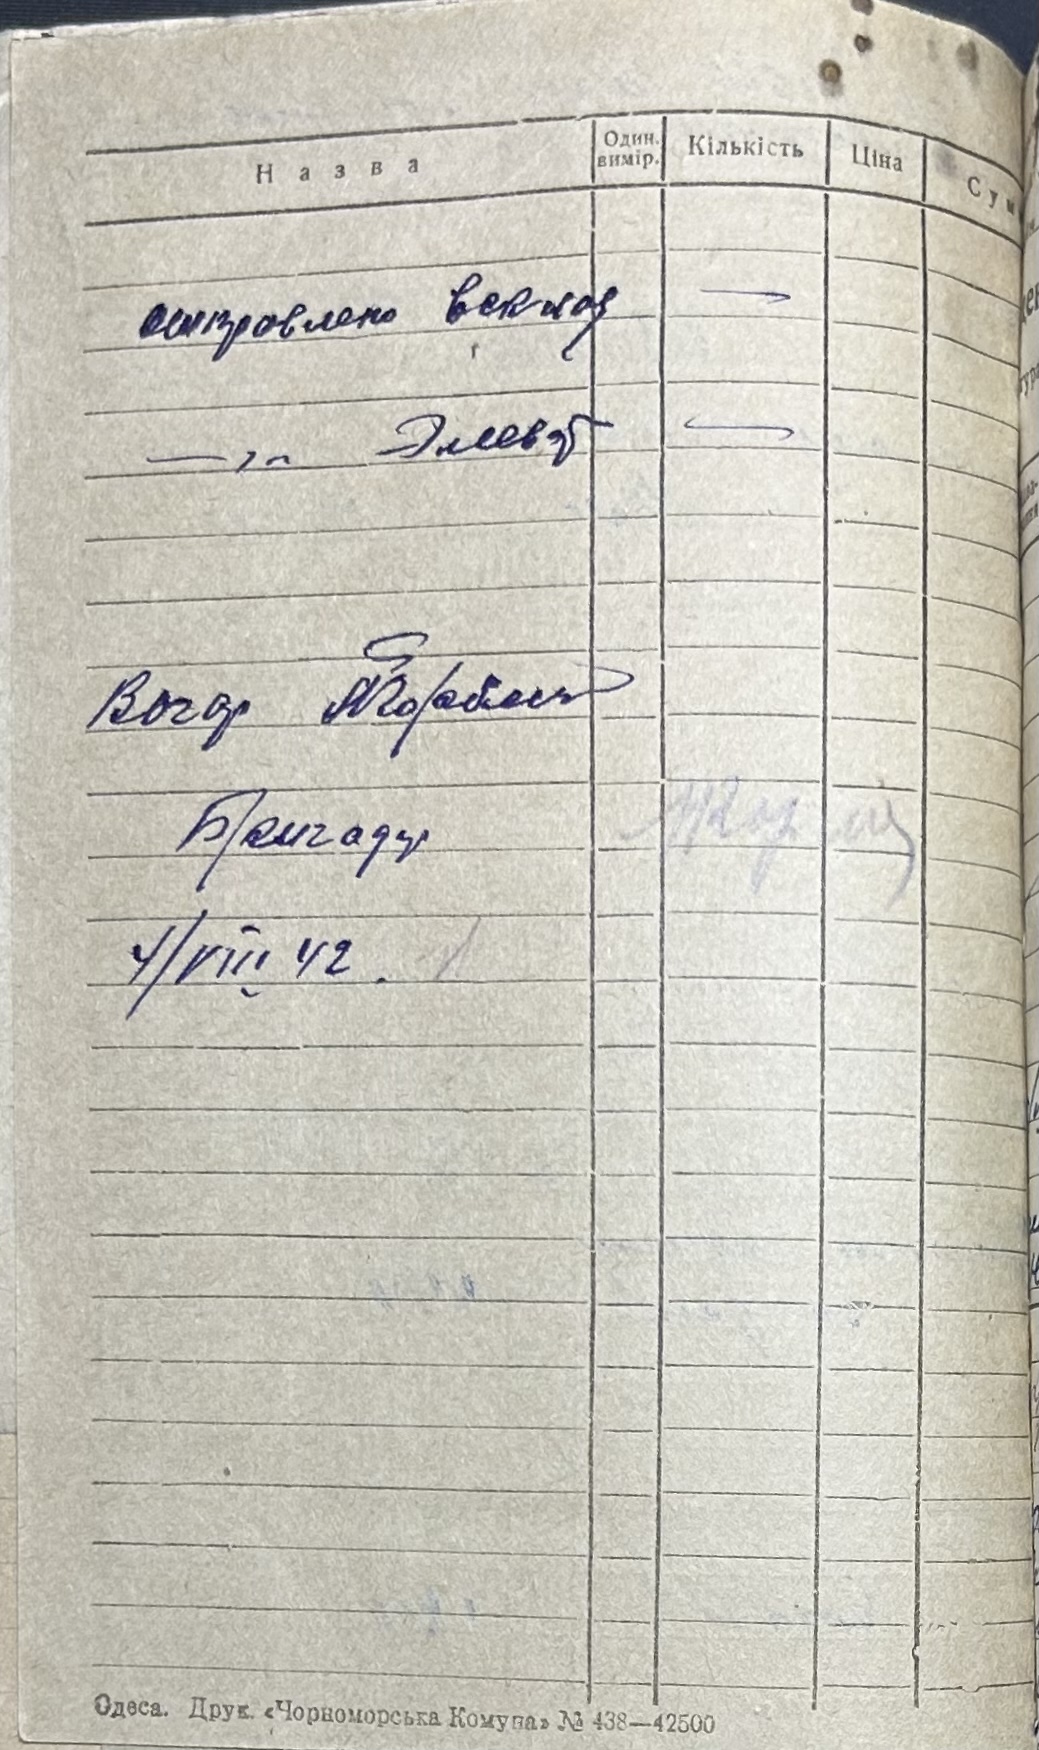 Назва Один. вимір. Кількість Ціна Сум
отправлено в склад —
—„— Элеват —
Вагар
Бригадир
4/VIII 42.
Одеса. Друк. «Чорноморська Комуна» № 438—42500